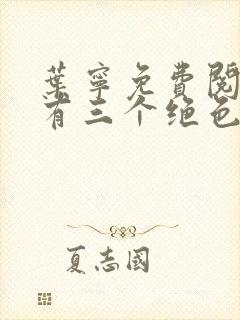 葉寧免費閱
有三个绝色
夏志國